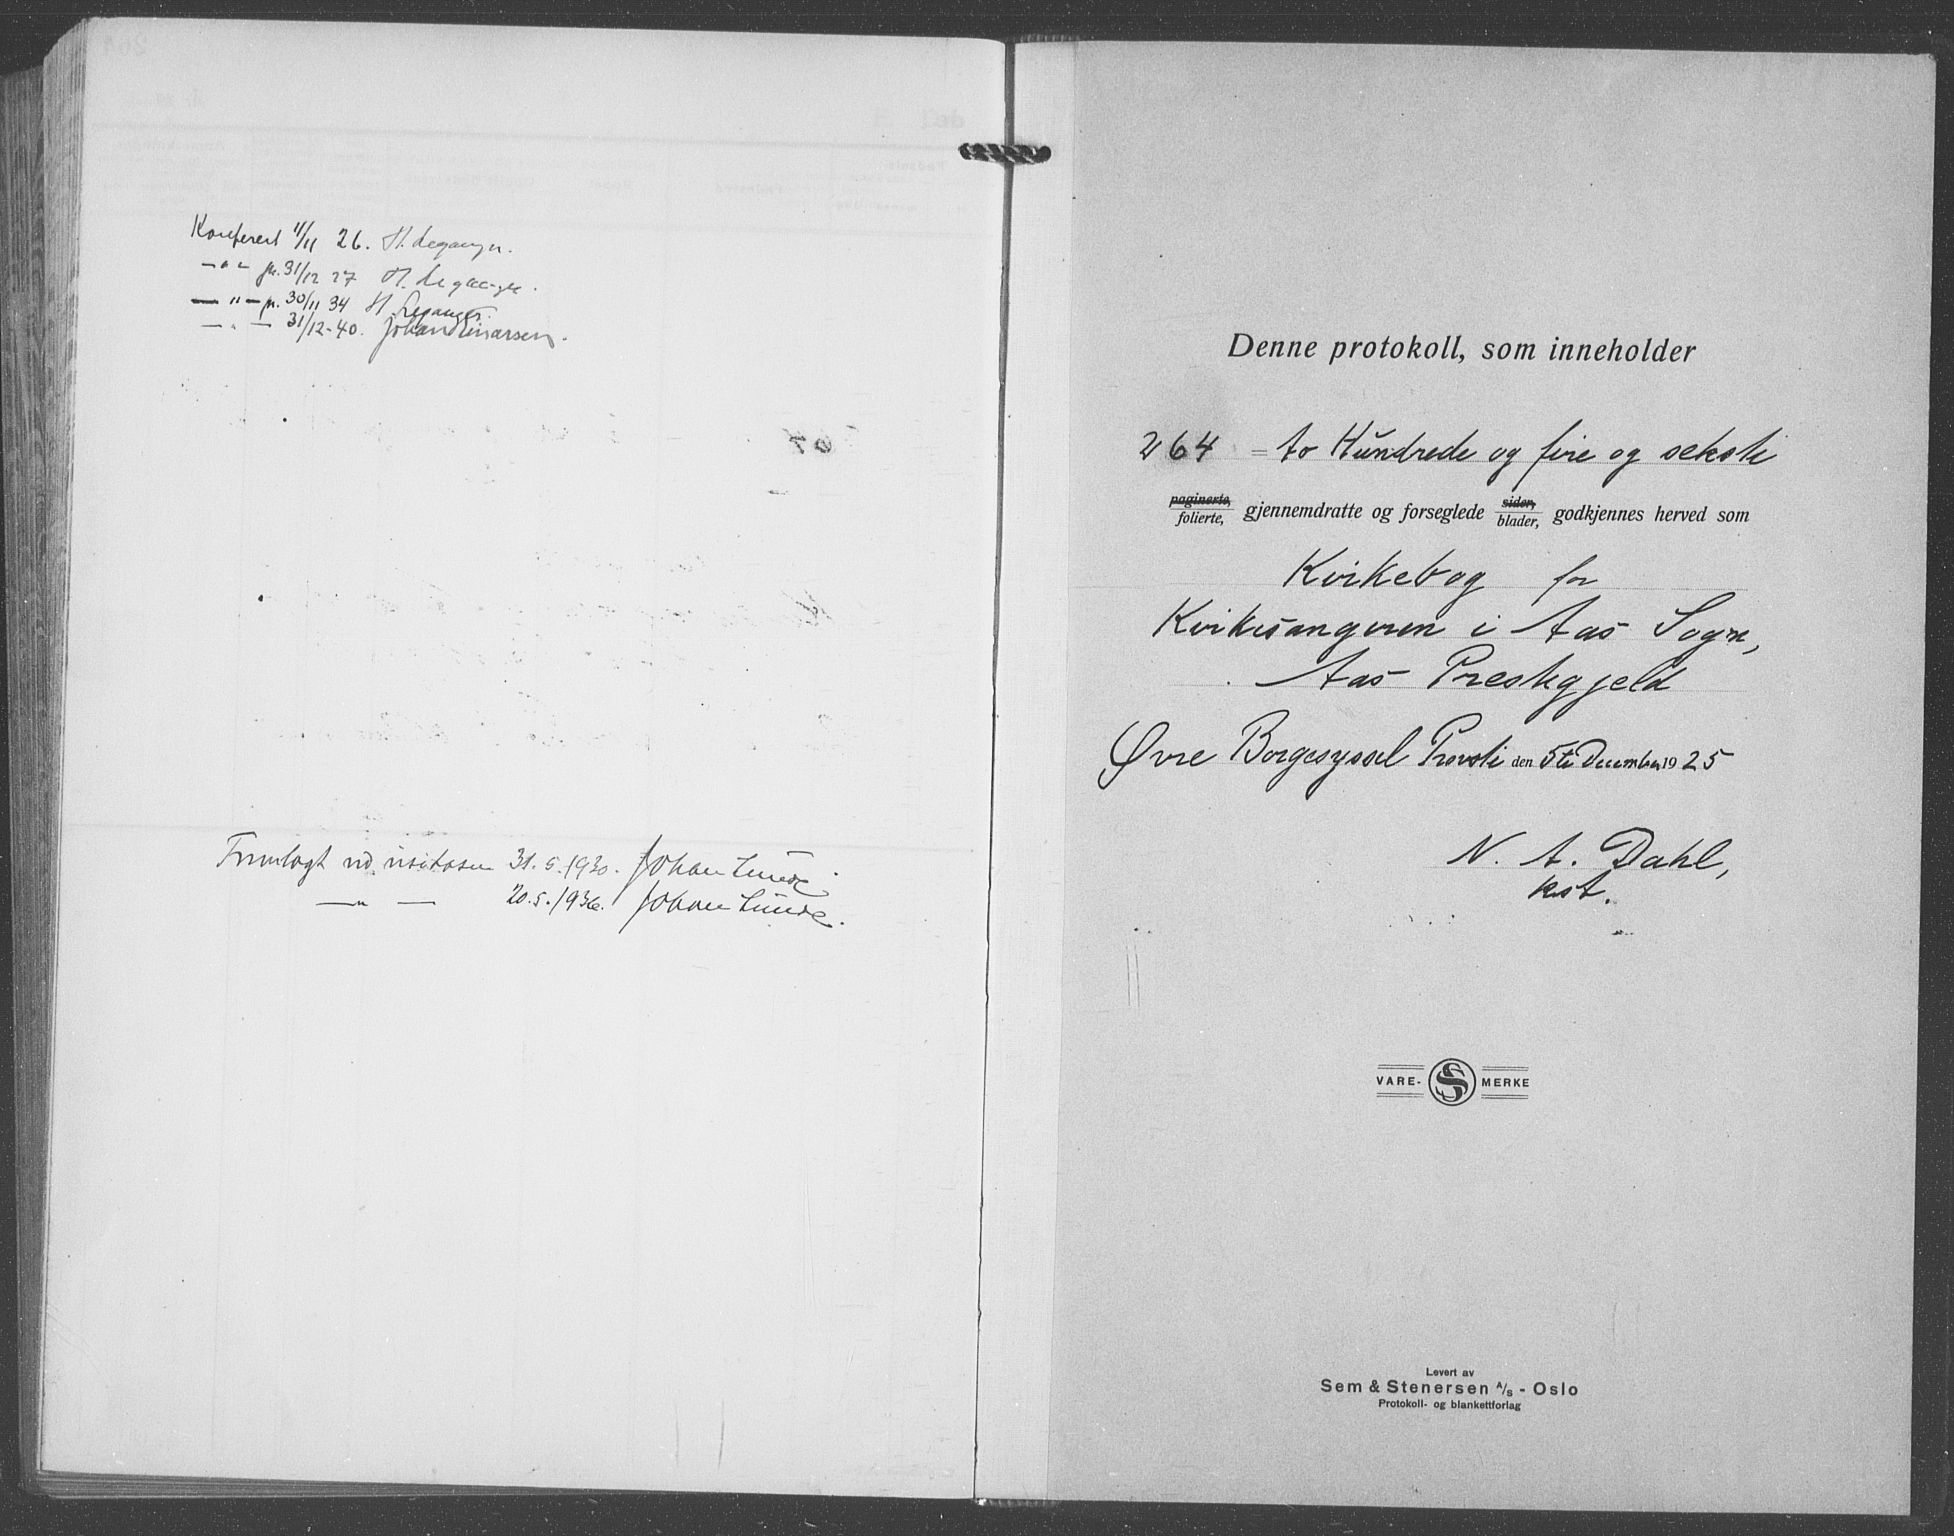 Konferert 11/11 26. H. Leganger.
— " — pr. 31/12 27 H. Leganger.
— " — pr. 30/11 34 H. Leganger.
— " — 31/12-40. Johan Einarsen.
Fremlagt ved visitasen 31.5.1930. Johan Lunde
— " — 20.5.1936. Johan Lunde.
Denne protokoll, som inneholder
264 = to Hundrede og fire og seksti
paginerte, folierte, gjennemdratte og forseglede sider, blader, godkjennes herved som
Kirkebog for
Kirkesangeren i Aas Sogn,
Aas Prestegjeld
Øvre Borgesyssel Provsti den 5te December 1925
N. A. Dahl,
kst.
VARE- SS MERKE
Levert av
Sem & Stenersen A/S - Oslo
Protokoll- og blankettforlag